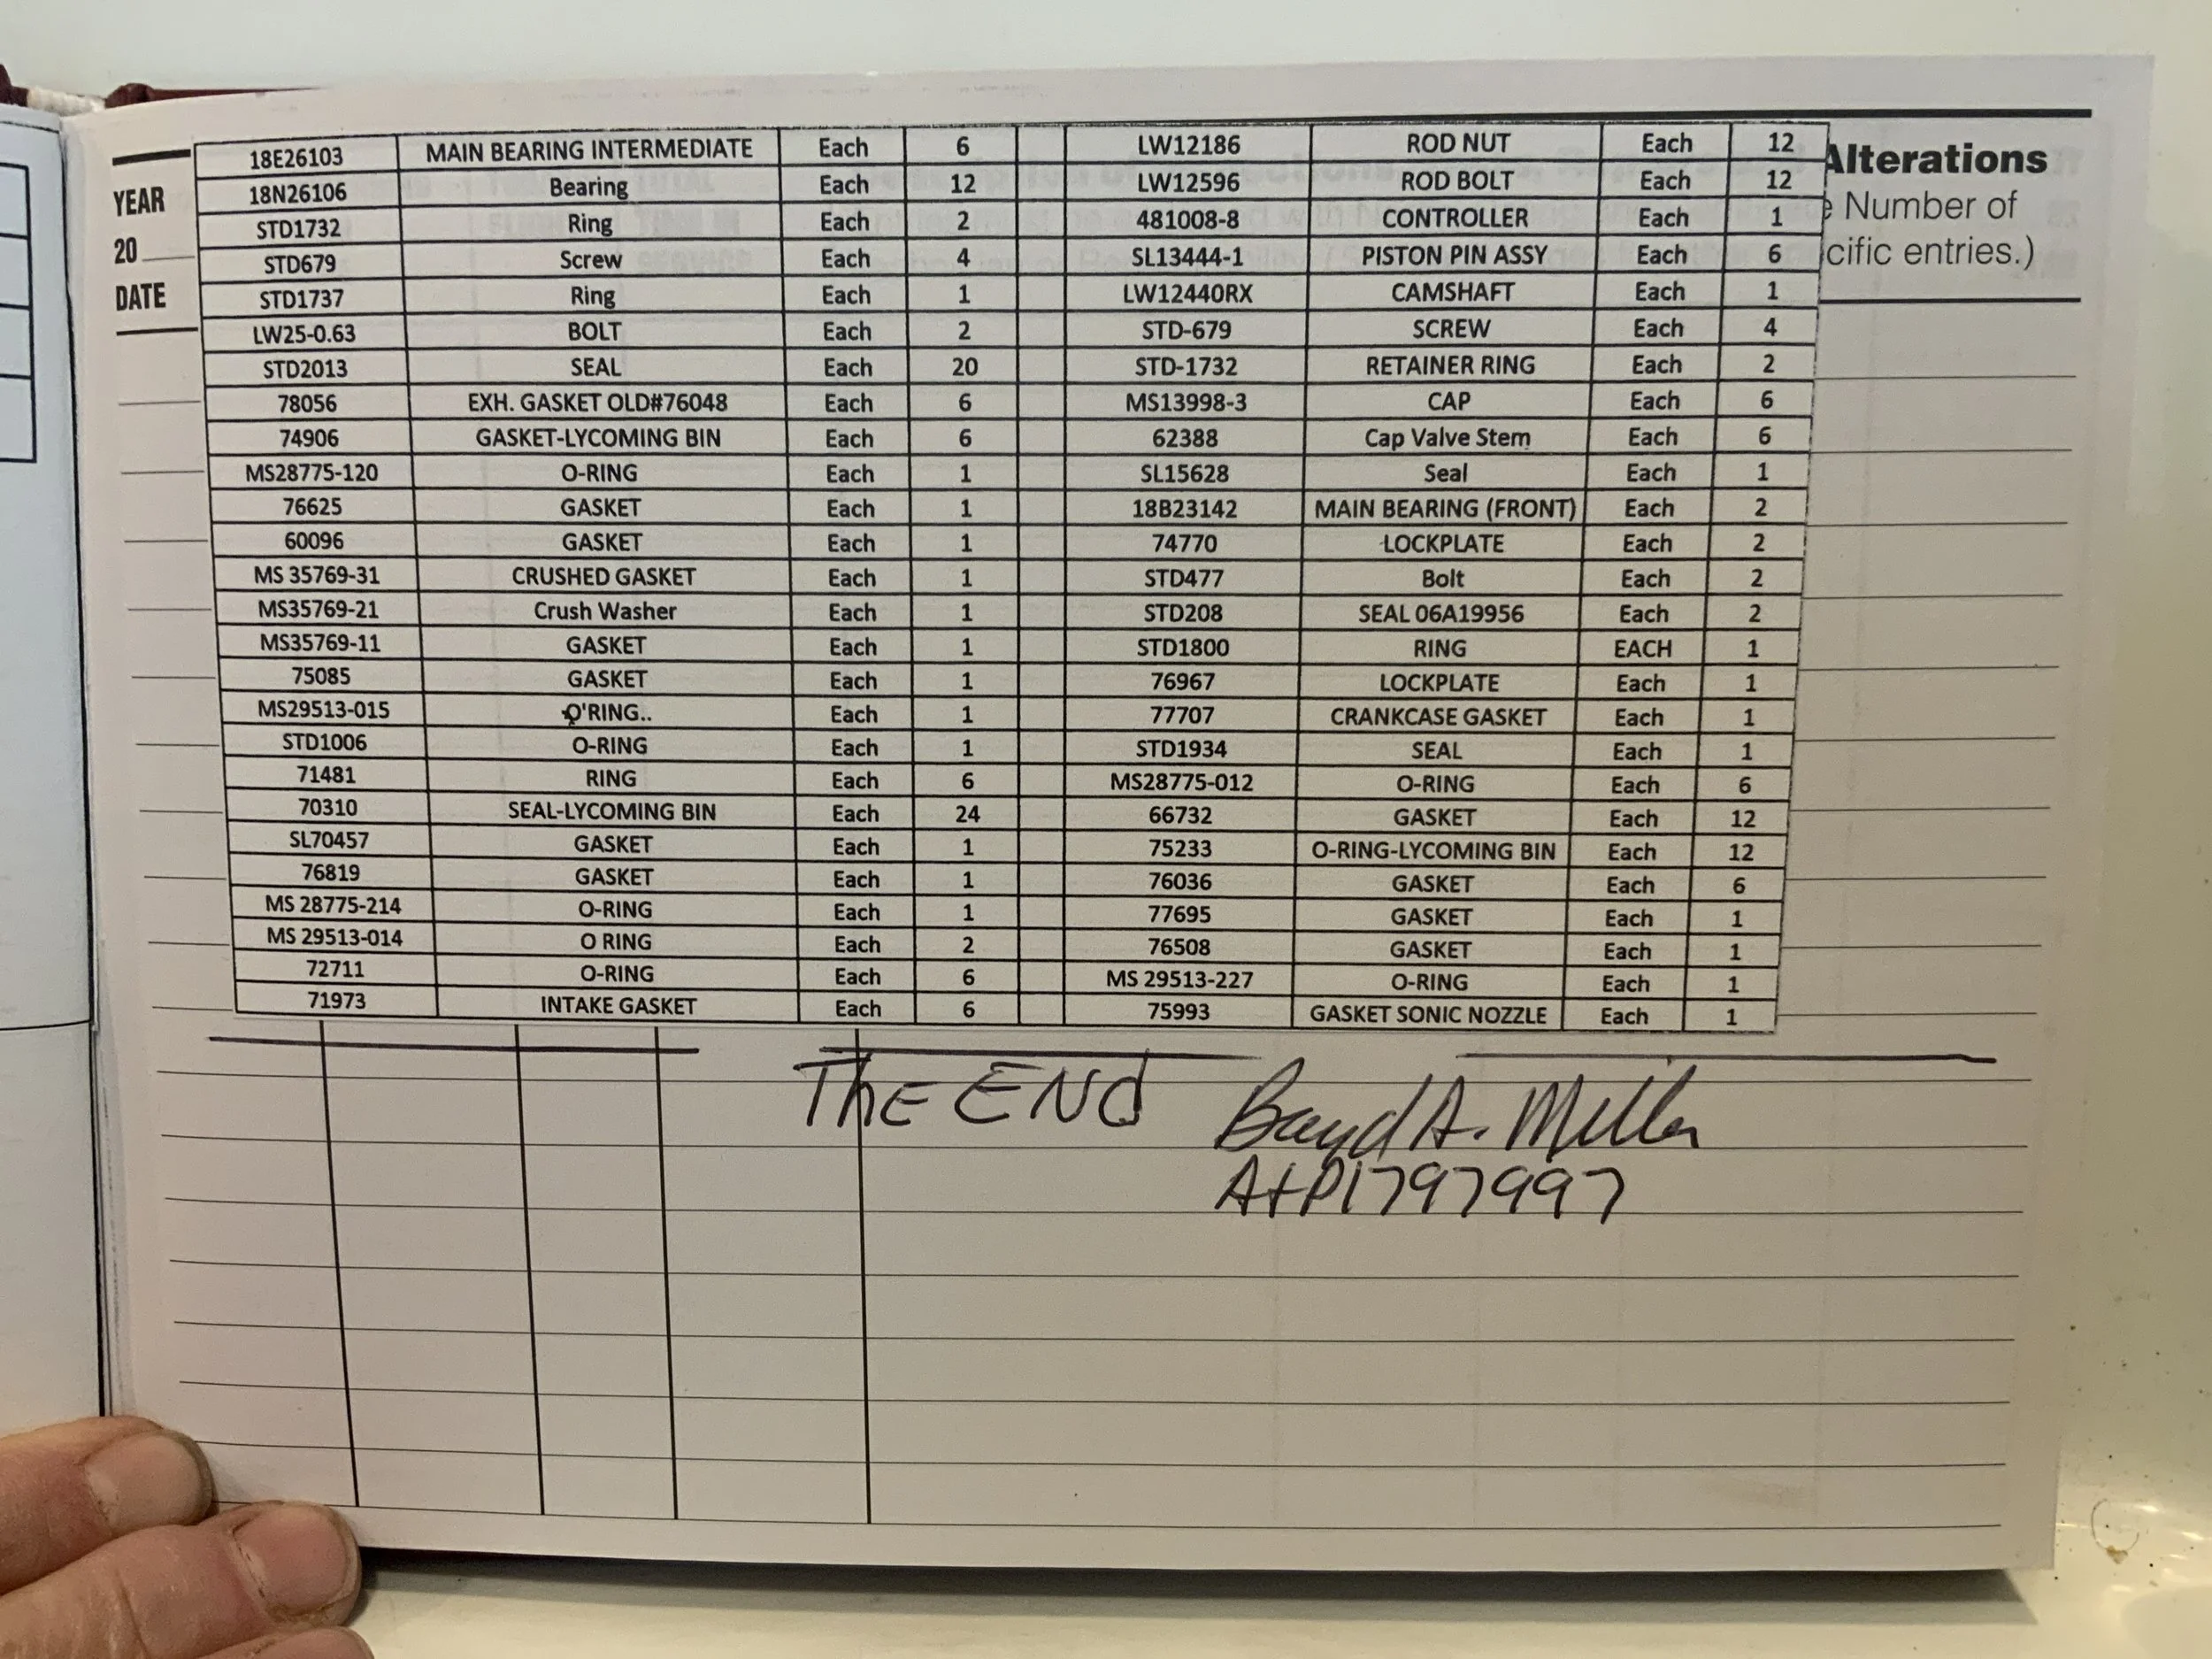 18E26103 MAIN BEARING INTERMEDIATE Each 6 LW12186 ROD NUT Each 12
18N26106 Bearing Each 12 LW12596 ROD BOLT Each 12
STD1732 Ring Each 2 481008-8 CONTROLLER Each 1
STD679 Screw Each 4 SL13444-1 PISTON PIN ASSY Each 6
STD1737 Ring Each 1 LW12440RX CAMSHAFT Each 1
LW25-0.63 BOLT Each 2 STD-679 SCREW Each 4
STD2013 SEAL Each 20 STD-1732 RETAINER RING Each 2
78056 EXH. GASKET OLD#76048 Each 6 MS13998-3 CAP Each 6
74906 GASKET-LYCOMING BIN Each 6 62388 Cap Valve Stem Each 6
MS28775-120 O-RING Each 1 SL15628 Seal Each 1
76625 GASKET Each 1 18B23142 MAIN BEARING (FRONT) Each 2
60096 GASKET Each 1 74770 LOCKPLATE Each 2
MS 35769-31 CRUSHED GASKET Each 1 STD477 Bolt Each 2
MS35769-21 Crush Washer Each 1 STD208 SEAL 06A19956 Each 2
MS35769-11 GASKET Each 1 STD1800 RING EACH 1
75085 GASKET Each 1 76967 LOCKPLATE Each 1
MS29513-015 O'RING.. Each 1 77707 CRANKCASE GASKET Each 1
STD1006 O-RING Each 1 STD1934 SEAL Each 1
71481 RING Each 6 MS28775-012 O-RING Each 6
70310 SEAL-LYCOMING BIN Each 24 66732 GASKET Each 12
SL70457 GASKET Each 1 75233 O-RING-LYCOMING BIN Each 12
76819 GASKET Each 1 76036 GASKET Each 6
MS 28775-214 O-RING Each 1 77695 GASKET Each 1
MS 29513-014 O RING Each 2 76508 GASKET Each 1
72711 O-RING Each 6 MS 29513-227 O-RING Each 1
71973 INTAKE GASKET Each 6 75993 GASKET SONIC NOZZLE Each 1
YEAR
20
DATE
Alterations
Number of
cific entries.)
ThE ENd
Boyd A. Miller
A+P1797997